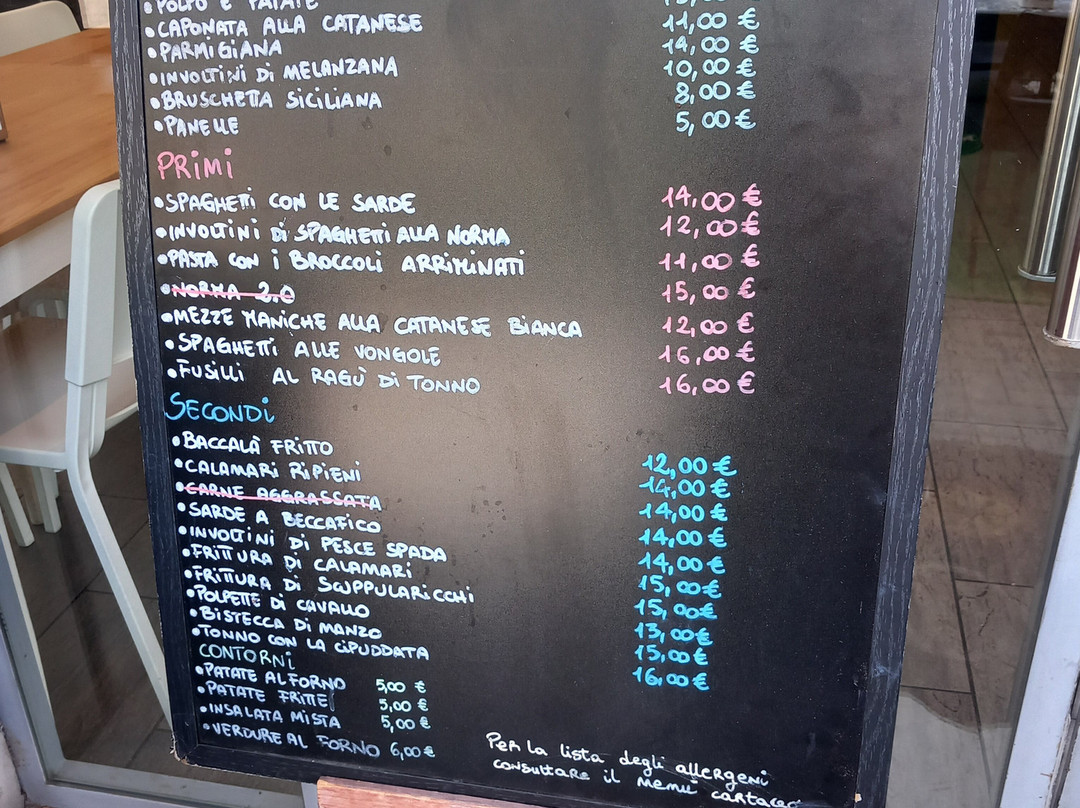 •POLPO E PATATE
•CAPONATA ALLA CATANESE 11,00 €
•PARMIGIANA 14,00 €
•INVOLTINI DI MELANZANA 10,00 €
•BRUSCHETTA SICILIANA 8,00 €
•PANELLE 5,00 €
PRIMI
•SPAGHETTI CON LE SARDE 14,00 €
•INVOLTINI DI SPAGHETTI ALLA NORMA 12,00 €
•PASTA CON I BROCCOLI ARRIMINATI 11,00 €
•NORMA 2.0 15,00 €
•MEZZE MANICHE ALLA CATANESE BIANCA 12,00 €
•SPAGHETTI ALLE VONGOLE 16,00 €
•FUSILLI AL RAGÙ DI TONNO 16,00 €
SECONDI
•BACCALÀ FRITTO 12,00 €
•CALAMARI RIPIENI 14,00 €
•CARNE AGGRASSATA 14,00 €
•SARDE A BECCAFICO 14,00 €
•INVOLTINI DI PESCE SPADA 14,00 €
•FRITTURA DI CALAMARI 15,00 €
•FRITTURA DI SCUPPULARICCHI 15,00 €
•POLPETTE DI CAVALLO 13,00 €
•BISTECCA DI MANZO 15,00 €
•TONNO CON LA CIPUDDATA 16,00 €
CONTORNI
•PATATE AL FORNO 5,00 €
•PATATE FRITTE 5,00 €
•INSALATA MISTA 5,00 €
•VERDURE AL FORNO 6,00 €
Per la lista degli allergeni
consultare il menù cartaceo